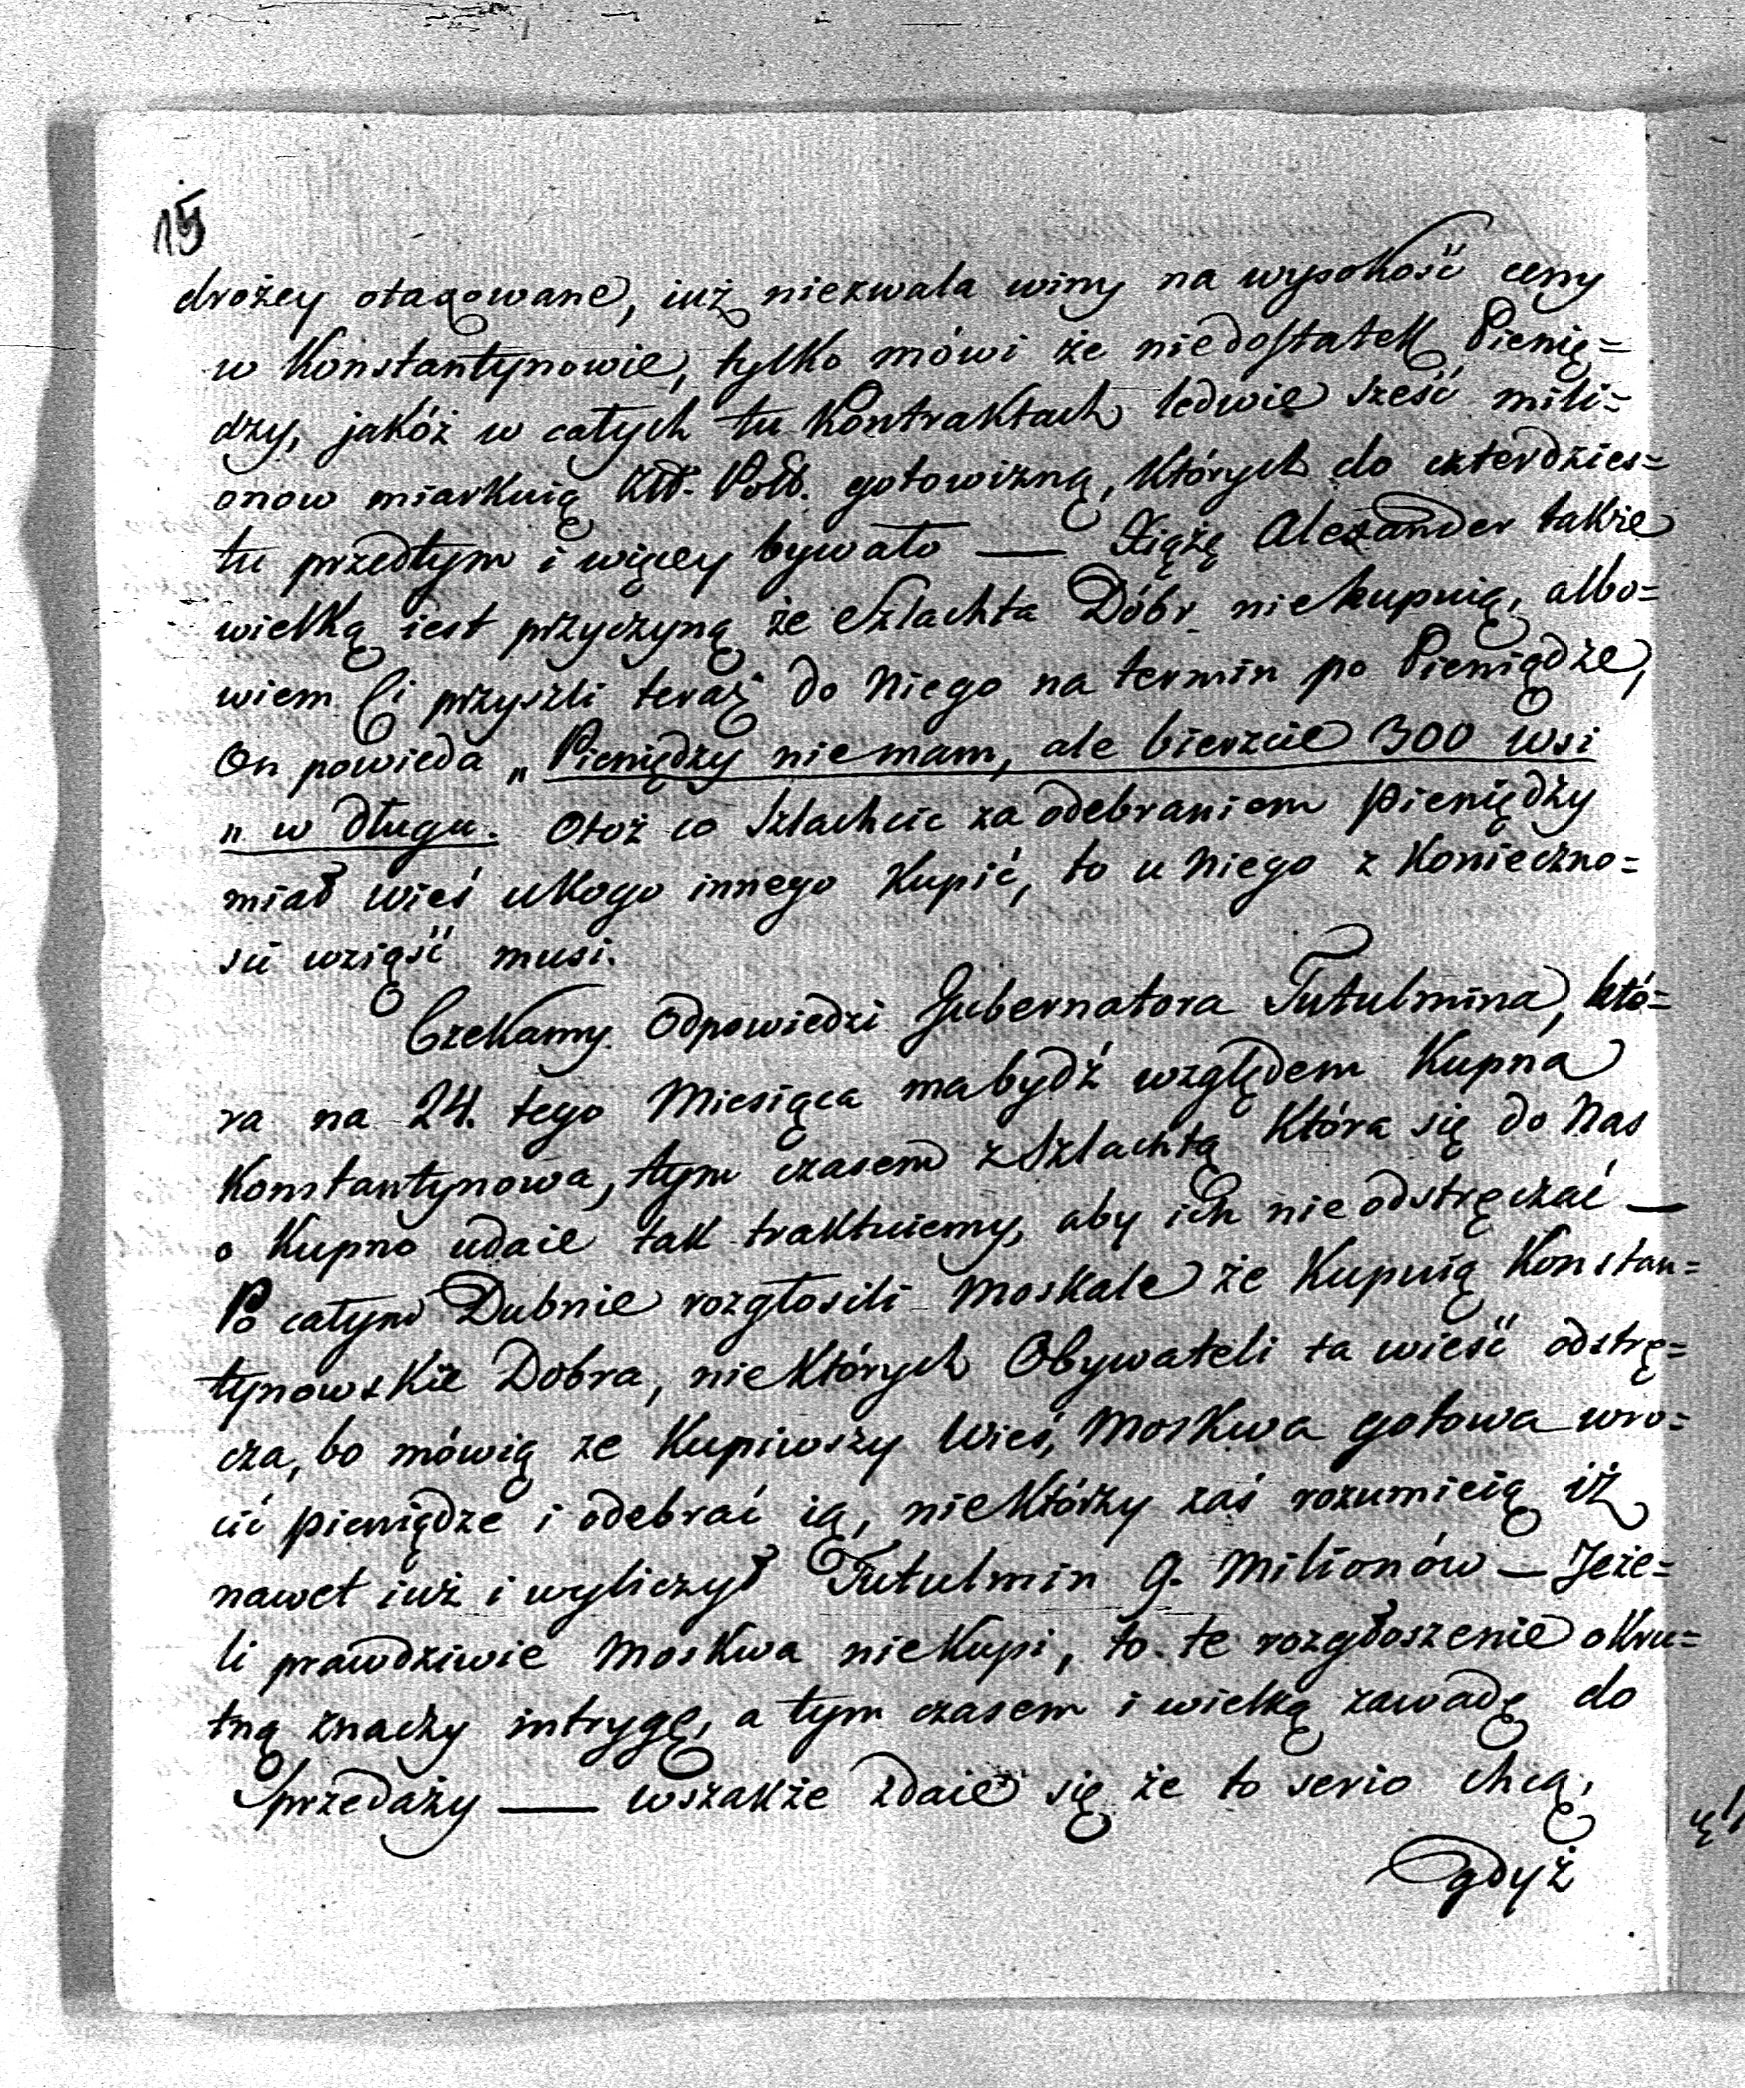 15
drożey otaxowane, iuż niezwala winy na wysokość ceny
w Konstantynowie, tylko mówi że niedostatek Pienię=
dzy, jakóż w całych tu Kontraktach ledwie sześć mili=
onow miarkuią Złł. Poll. gotowizną, których do czterdzies=
tu przedtym i więcey bywało — Xiążę Alexander także
wielką iest przyczyną że Szlachta Dóbr niekupuią, albo=
wiem Ci przyszli teraz do Niego na termin po Pieniądze,
On powieda „Pieniędzy niemam, ale bierzcie 300 wsi
„ w długu. Otoż co Szlachcic za odebraniem pieniędzy
miał wieś ukogo innego Kupić, to u Niego z Konieczno=
sci wziąść musi.
Czekamy Odpowiedzi Gubernatora Tutulmina, któ=
ra na 24. tego Miesiąca mabydź względem Kupna
Konstantynowa, tym czasem z Szlachtą która się do Nas
o Kupno udaie tak traktuiemy, aby ich nie odstręczać —
Po całym Dubnie rozgłosili Moskale że Kupuią Konstan=
tynowskie Dobra, niektórych Obywateli ta wieść odstrę=
cza, bo mówią ze Kupiwszy Wieś, Moskwa gotowa wro=
cić pieniądze i odebrać ią, niektórzy zaś rozumieią iż
nawet iuż i wyliczył Tutulmin 9. Milionów — Jeże=
li prawdziwie Moskwa niekupi, to te rozgłoszenie okru=
tną znaczy intrygę, a tym czasem i wielką zawadę do
Sprzedaży — wszakże zdaie się że to serio chcą,
gdyż